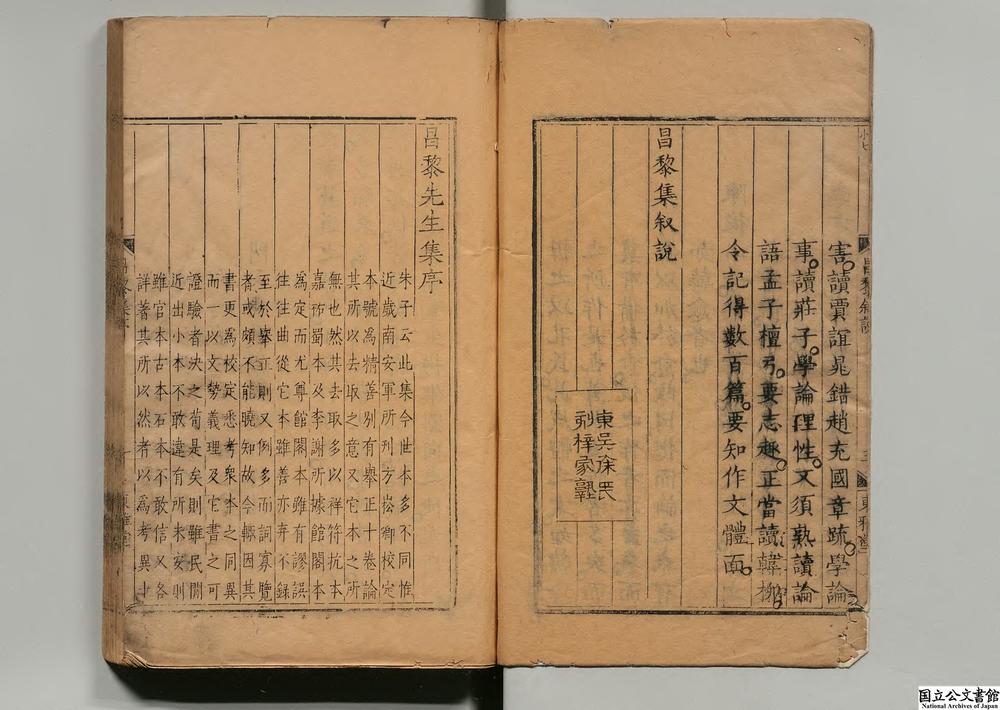 害讀賈誼晁錯趙充國章疏學論
事讀莊子學論理性又須熟讀論
語孟子檀弓要志趣正當讀韓柳
令記得數百篇要知作文體面
昌黎集叙說
東吳徐氏
刻梓家塾
昌黎叙說
三
東雅堂
昌黎先生集序
朱子云此集今世本多不同惟
近歲南安軍所刊方崧卿校定
本號為精善別有舉正十卷論
其所以去取之意又它本之所
無也然其去取多以祥符杭本
嘉祐蜀本及李謝所據館閣本
為定而尤尊館閣本雖有謬誤
往往曲從它本雖善亦弃不錄
至於舉正則又例多而詞寡覽
者或頗不能曉知故今輒因其
書更為校定悉考衆本之同異
而一以文勢義理及它書之可
證驗者決之苟是矣則雖民間
近出小本不敢違有所未安則
雖官本古本石本不敢信又各
詳著其所以然者以為考異十
東雅堂
国立公文書館
National Archives of Japan